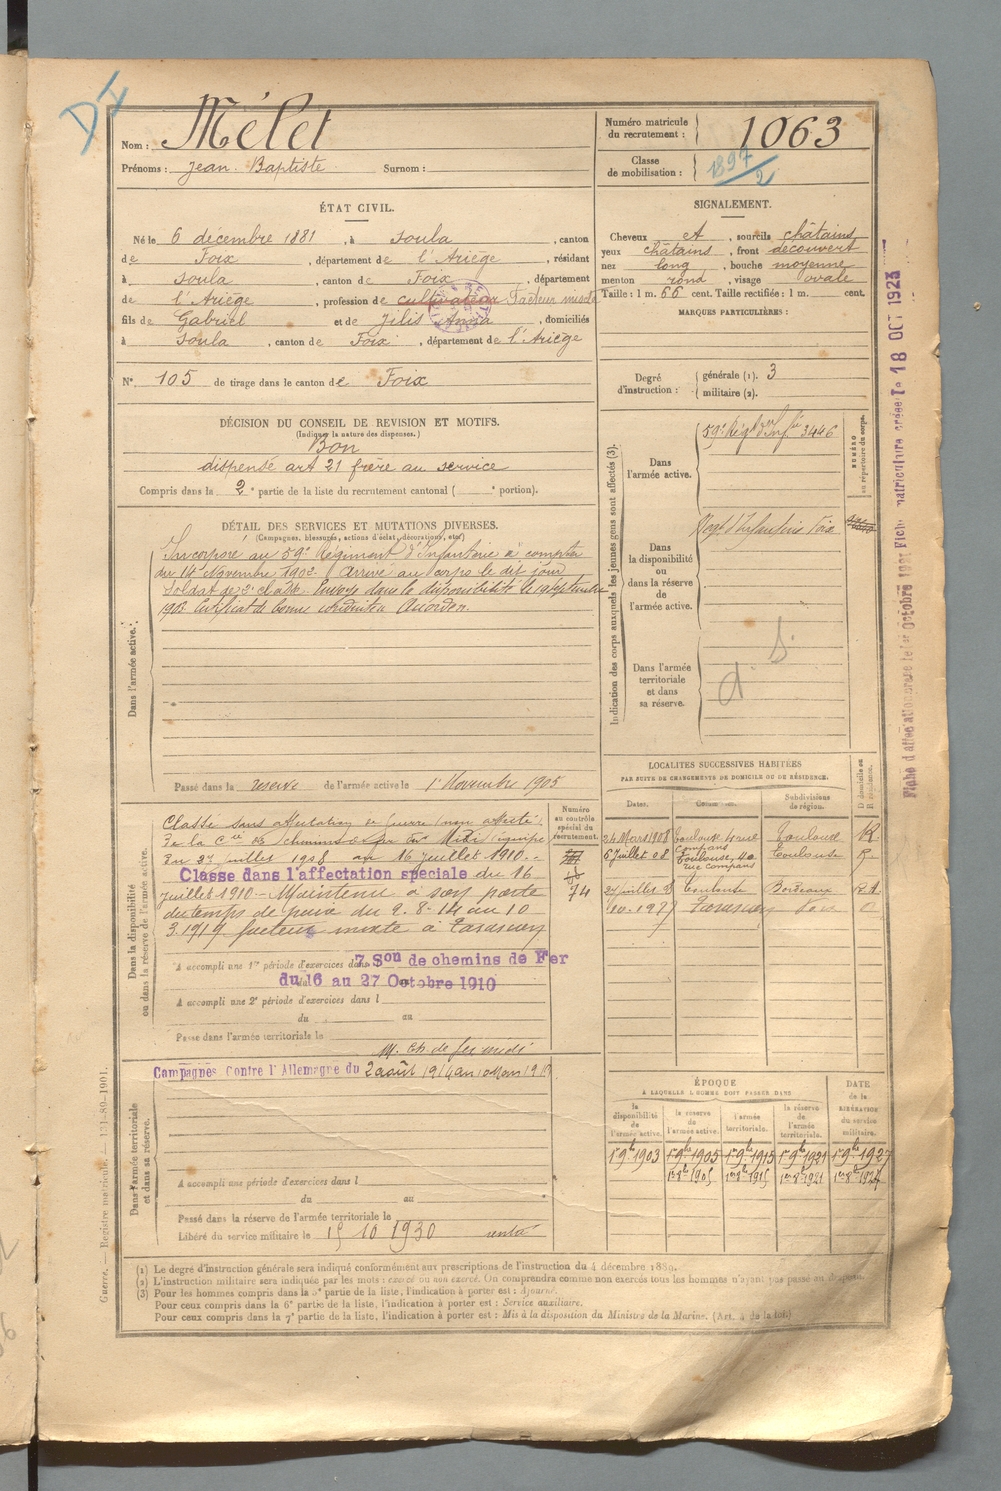 DI
Nom : Mélet
Prénoms : Jean Baptiste Surnom :
Numéro matricule du recrutement : 1063
Classe de mobilisation : 1897/2
ÉTAT CIVIL.
Né le 6 décembre 1881, à Soula, canton
de Foix, département de l'Ariège, résidant
à Soula, canton de Foix, département
de l'Ariège, profession de cultivateur Facteur mixte
fils de Gabriel et de Jélis Anna, domiciliés
à Soula, canton de Foix, département de l'Ariège
N° 105 de tirage dans le canton de Foix
SIGNALEMENT.
Cheveux et, sourcils châtains
yeux châtains, front découvert
nez long, bouche moyenne
menton rond, visage ovale
Taille : 1 m. 66 cent. Taille rectifiée : 1 m. cent.
MARQUES PARTICULIÈRES :
Degré d'instruction : générale (1). 3
militaire (2).
DÉCISION DU CONSEIL DE REVISION ET MOTIFS.
(Indiquer la nature des dispenses.)
Bon
dispensé art 21 frère au service
Compris dans la 2e partie de la liste du recrutement cantonal ( e portion).
DÉTAIL DES SERVICES ET MUTATIONS DIVERSES.
(Campagnes, blessures, actions d'éclat, décorations, etc.)
Dans l'armée active.
Incorporé au 59e Régiment d'Infanterie à compter
du 14 Novembre 1902. Arrivé au corps le dit jour
Soldat de 2e classe. Envoyé dans la disponibilité le 19 septembre
1903. Certificat de bonne conduite Accordé.
Passé dans la réserve de l'armée active le 1er Novembre 1905
Indication des corps auxquels les jeunes gens sont affectés (3).
NUMÉRO au répertoire du corps.
Dans l'armée active.
59e Régt d'Infie 3446
Dans la disponibilité ou dans la réserve de l'armée active.
Regt d'Infanterie Foix
Dans l'armée territoriale et dans sa réserve.
Fiche d'affectation matriculaire créée le 18 OCT 1923
LOCALITÉS SUCCESSIVES HABITÉES
PAR SUITE DE CHANGEMENTS DE DOMICILE OU DE RÉSIDENCE.
Dates. Communes. Subdivisions de région. D domicile ou R résidence.
24 Mars 1908 Toulouse, 4 rue Compans Toulouse R.
6 Juillet 08 Toulouse, 4 rue Compans Toulouse R.
27 juillet 08 Toulouse Bordeaux R.
Tarascon
Dans la disponibilité ou dans la réserve de l'armée active.
Numéro au contrôle spécial du recrutement.
74
Classé sans affectation de guerre (non affecté)
de la Cie des chemins de fer du Midi équipe
du 27 juillet 1908 au 16 juillet 1910.
Classé dans l'affectation spéciale du 16
juillet 1910 - Maintenu à son poste
du temps de paix du 2.8.14 au 10
3.1919 facteur mixte à Tarascon
A accompli une 1re période d'exercices dans 7 Son de chemins de Fer
du 16 au 27 Octobre 1910
A accompli une 2e période d'exercices dans l
du au
Passé dans l'armée territoriale le
Dans l'armée territoriale et dans sa réserve.
Campagnes contre l'Allemagne du 2 août 1914 au 10 Mars 19
A accompli une période d'exercices dans l
du au
Passé dans la réserve de l'armée territoriale le
Libéré du service militaire le 15 10 1930
ÉPOQUE
À LAQUELLE L'HOMME DOIT PASSER DANS
la disponibilité de l'armée active. la réserve de l'armée active. l'armée territoriale. la réserve de l'armée territoriale.
DATE de la LIBÉRATION du service militaire.
1er 9bre 1903 1er 9bre 1905 1er 9bre 1915 1er 9bre 1921 1er 9bre 1927
1er 8bre 1905 1er 8bre 1915 1er 8bre 1921
(1) Le degré d'instruction générale sera indiqué conformément aux prescriptions de l'instruction du 4 décembre 1889.
(2) L'instruction militaire sera indiquée par les mots : exercé ou non exercé. On comprendra comme non exercés tous les hommes n'ayant pas passé au drapeau.
(3) Pour les hommes compris dans la 5e partie de la liste, l'indication à porter est : Ajourné.
Pour ceux compris dans la 6e partie de la liste, l'indication à porter est : Service auxiliaire.
Pour ceux compris dans la 7e partie de la liste, l'indication à porter est : Mis à la disposition du Ministre de la Marine. (Art. 4 de la loi.)
Guerre. — Registre matricule. — 131-80-1901.